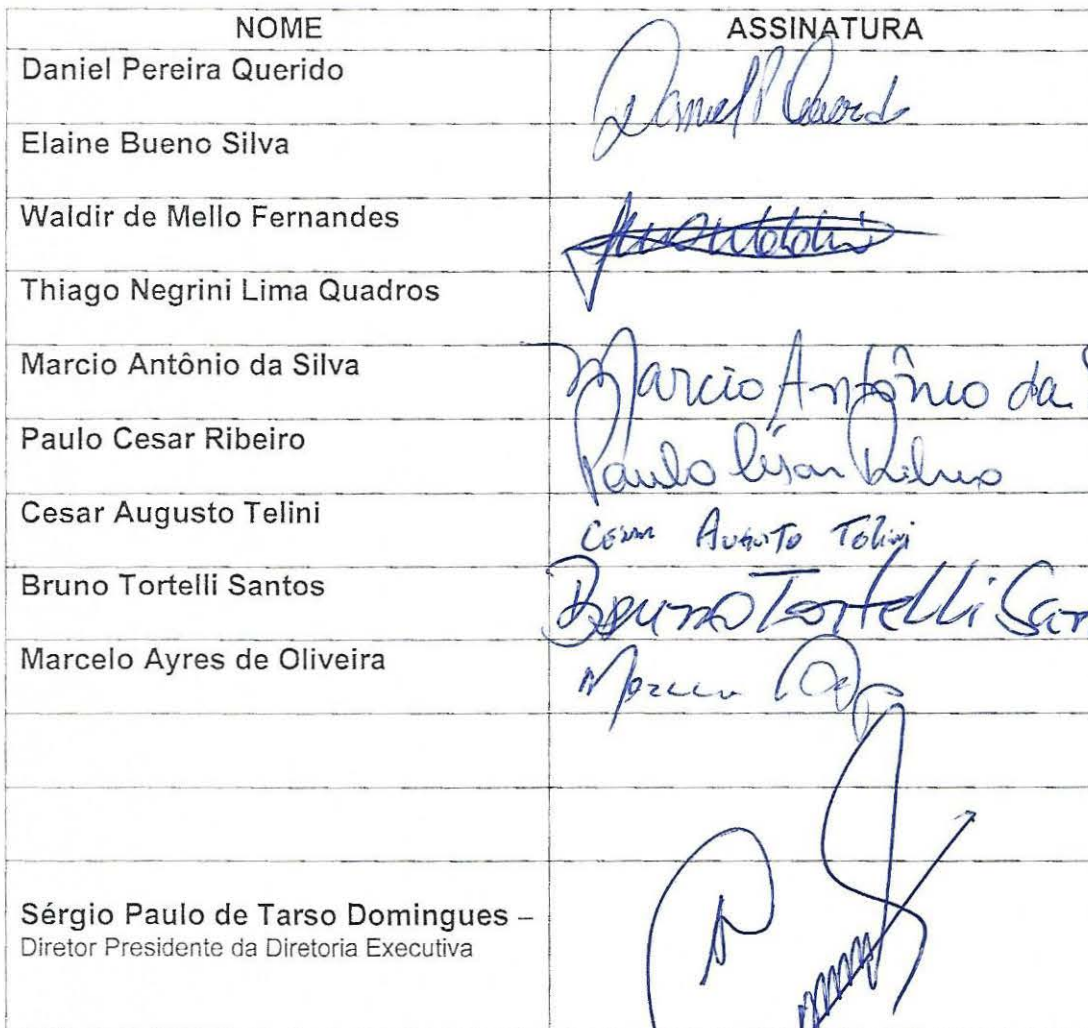 NOME ASSINATURA
Daniel Pereira Querido Daniel P Querido
Elaine Bueno Silva
Waldir de Mello Fernandes
Thiago Negrini Lima Quadros
Marcio Antônio da Silva Marcio Antônio da
Paulo Cesar Ribeiro Paulo César Ribeiro
Cesar Augusto Telini Cesar Augusto Telini
Bruno Tortelli Santos Bruno Tortelli San
Marcelo Ayres de Oliveira
Sérgio Paulo de Tarso Domingues –
Diretor Presidente da Diretoria Executiva